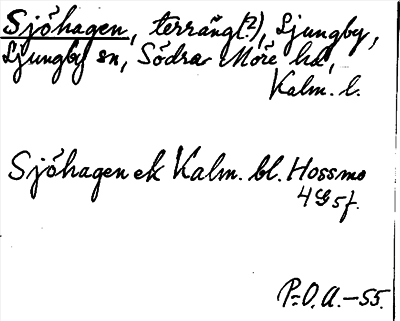 Sjöhagen, terräng(?), Ljungby,
Ljungby sn, Södra Möre hd,
Kalm. l.
Sjöhagen ek Kalm. bl. Hossmo
4G5f.
P=O.A.-55.